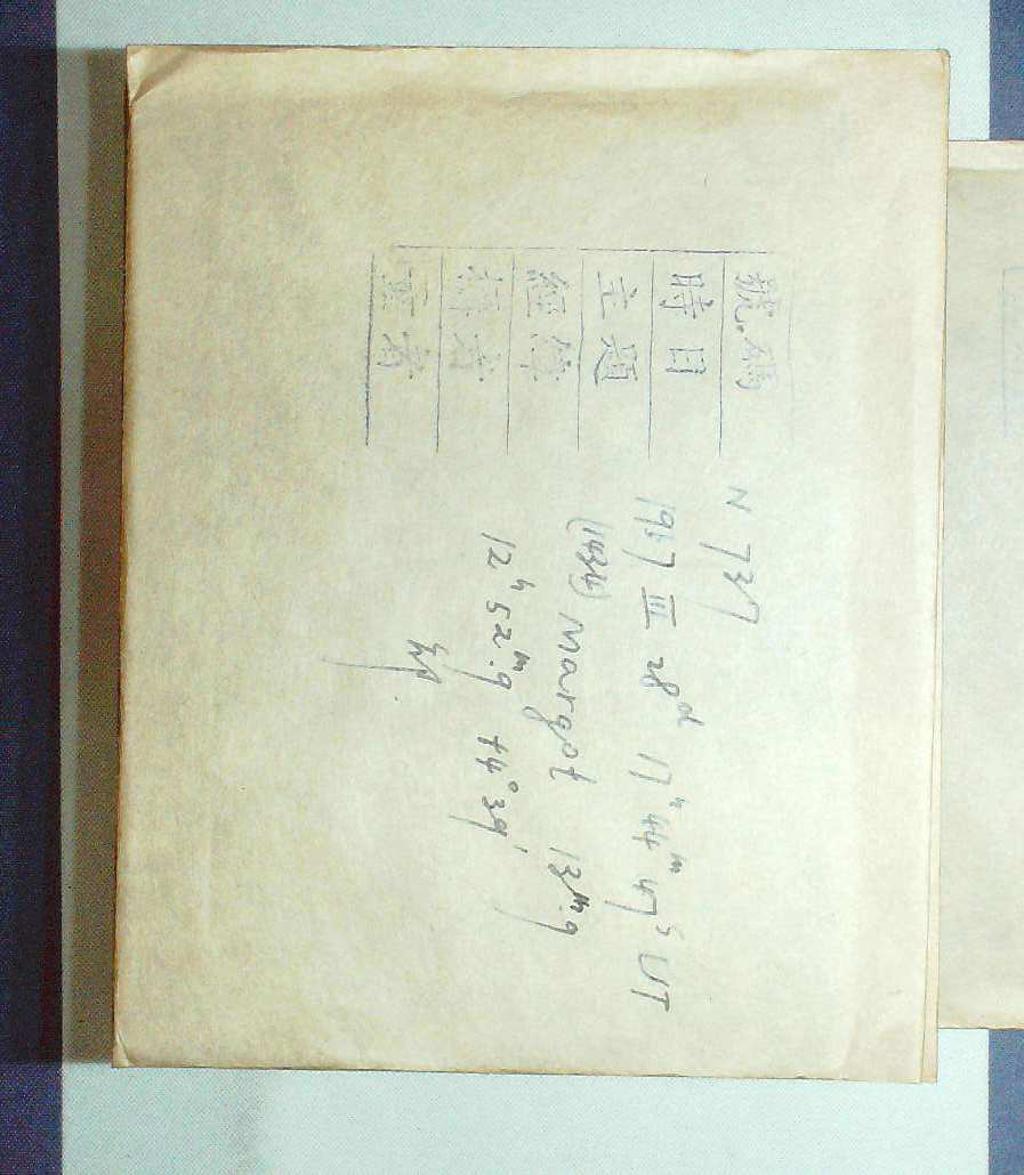 號碼 N 737
時日 1957 III 28d 17h 44m 47s UT
主題 (1434) margot 13m.9
經緯 12h 52m.9 +4° 39'
攝者
量者